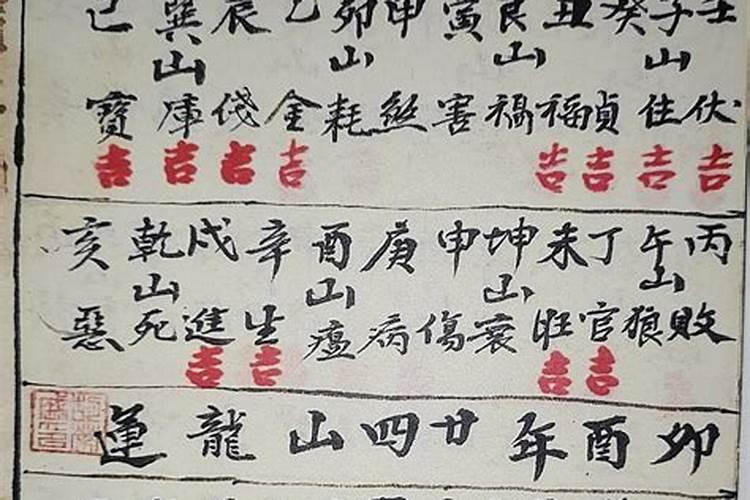 壬子癸丑艮寅甲卯乙辰巽巳
山山山山
伏住貞福禍害煞耗金錢庫寶
吉吉吉吉吉吉吉吉
丙午丁未坤申庚酉辛戌乾亥
山山山山
敗狼官旺衰傷病瘟生進死惡
吉吉吉吉
卯酉年廿四山龍運